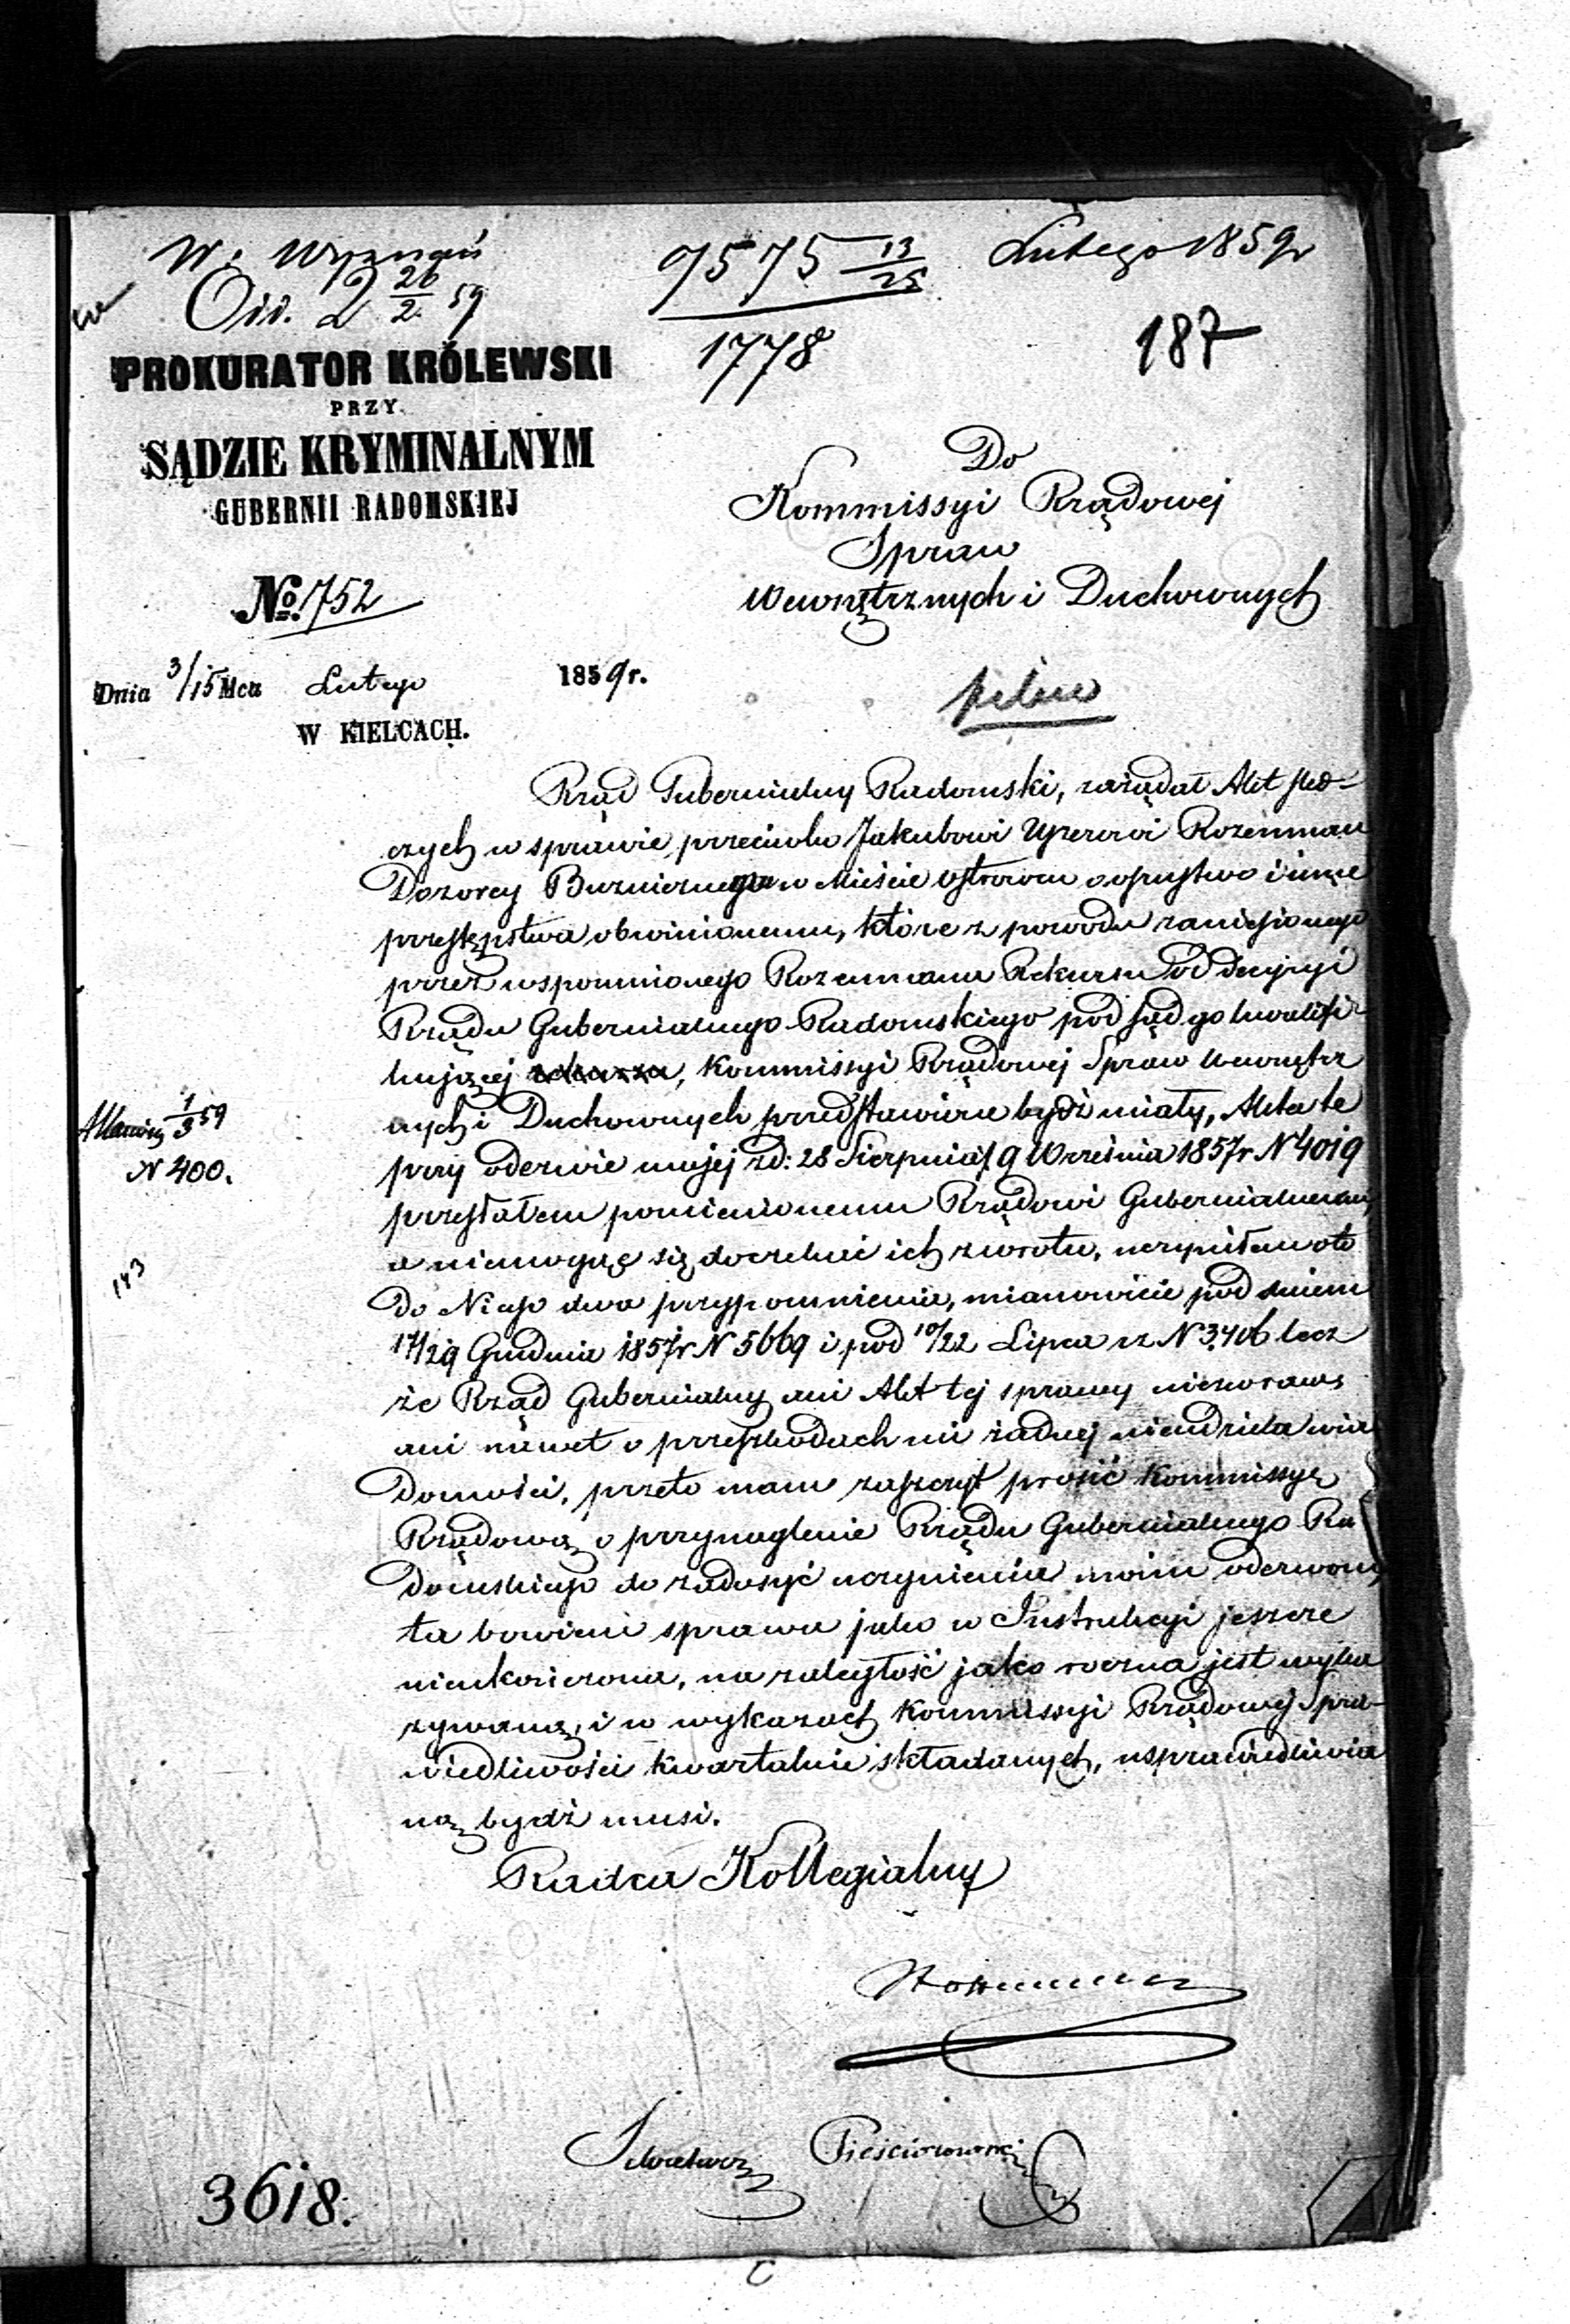 W. Wyznań
9575 13/25 Lutego 1859r
Oid. 2 26/2 59
1778
187
PROKURATOR KRÓLEWSKI
PRZY
SĄDZIE KRYMINALNYM
GUBERNII RADOMSKIEJ
No. 1752
Dnia 3/15 Mca Lutego 1859r.
W KIELCACH.
Do
Kommissyi Rządowej
Spraw
Wewnętrznych i Duchownych
pilne
Rząd Gubernialny Radomski, zażądał Akt śled-
czych w sprawie przeciwko Jakubowi Rozenman
Dozorcy Bużnicznemu w Mieście o opustwo i inne
przestępstwa obwinionemu, które z powodu zaniesionego
przez wspomnionego Rozenmana Rekursu od decyzyi
Rządu Gubernialnego Radomskiego pod sąd go kwalifi-
kującej, Kommissyi Rządowej Spraw Wewnętrz
nych i Duchownych przedstawione bydź miały, Akta te
przy odezwie mojej zd: 28 Sierpnia/9 Września 1857r N 4019
przesłałem pomienionemu Rządowi Gubernialnemu,
a niemogąc się doczekać ich zwrotu, uczyniłem oto
do Niego dwa przypomnienia, mianowicie pod dniem
17/29 Grudnia 1857r N 5669 i pod 10/22 Lipca rz N 3406 lecz
że Rząd Gubernialny ani Akt tej sprawy niezwraca,
ani nawet o przeszkodach mi żadnej nieudziela wia
domości, przeto mam zaszczyt prosić Kommissyę
Rządową o przynaglenie Rządu Gubernialnego Ra
domskiego do zadosyć uczynienia moim odezwom,
ta bowiem sprawa jako w Instrukcyi jeszcze
nieukończona, na zaległość jako roczna jest wyka
zywaną, i w wykazach Kommissyi Rządowej Spra-
wiedliwości kwartalnie składanych, usprawiedliwia
ną bydź musi.
Radca Kollegialny
Sekretarz Pieściorowski
1/3 59
N 400.
143
3618.